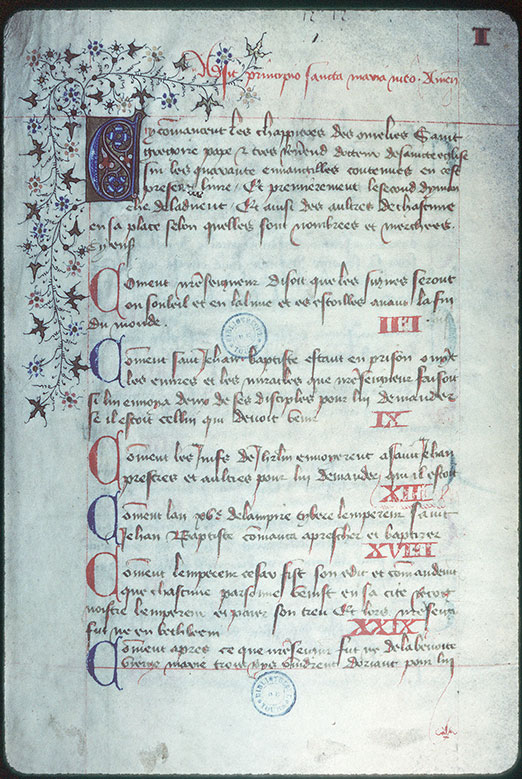 I
Assit principio sancta maria meo. Amen
Cy comancent les chappitres des omelies Saint
gregoire pape et tres docteur de saincte eglise
sus les quarante euuangilles contenues en cest
present liure. Et premierement le second dymen
che de laduent. Et ausi des aultres de chascune
en sa place selon quelles sont nombrees et
Coment nreseigneur disoit que les signes seront
ou souleil et en la lune et es estoilles auant la fin
du monde.
IIII
Coment saint Jehan baptiste estant en prison
les euures et les miracles que nreseigneur faisoit
si lui enuoya deux de ses disciples pour lui demander
se il estoit cellui qui deuoit venir
IX
Coment les Juifs de Jhrlm enuoyerent a saint Jehan
prestres et aultres pour lui demander qui il estoit
XIII
Coment lan xve de lampire tybere lempereur saint
Jehan Baptiste comanca a prescher et baptizer
XVIII
Coment lempereur cesar fist son edit et comandement
que chascune parsonne venist en sa cite
noistre lempereur et paier son treu Et lors nreseigneur
fut ne en bethleem
XXIX
Coment apres ce que nreseigneur fut ne de la benoite
vierge marie troys roys vindrent dorient pour lui